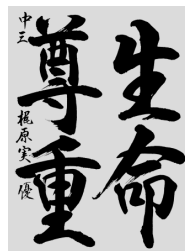 生命
尊重
中三 梶原実優